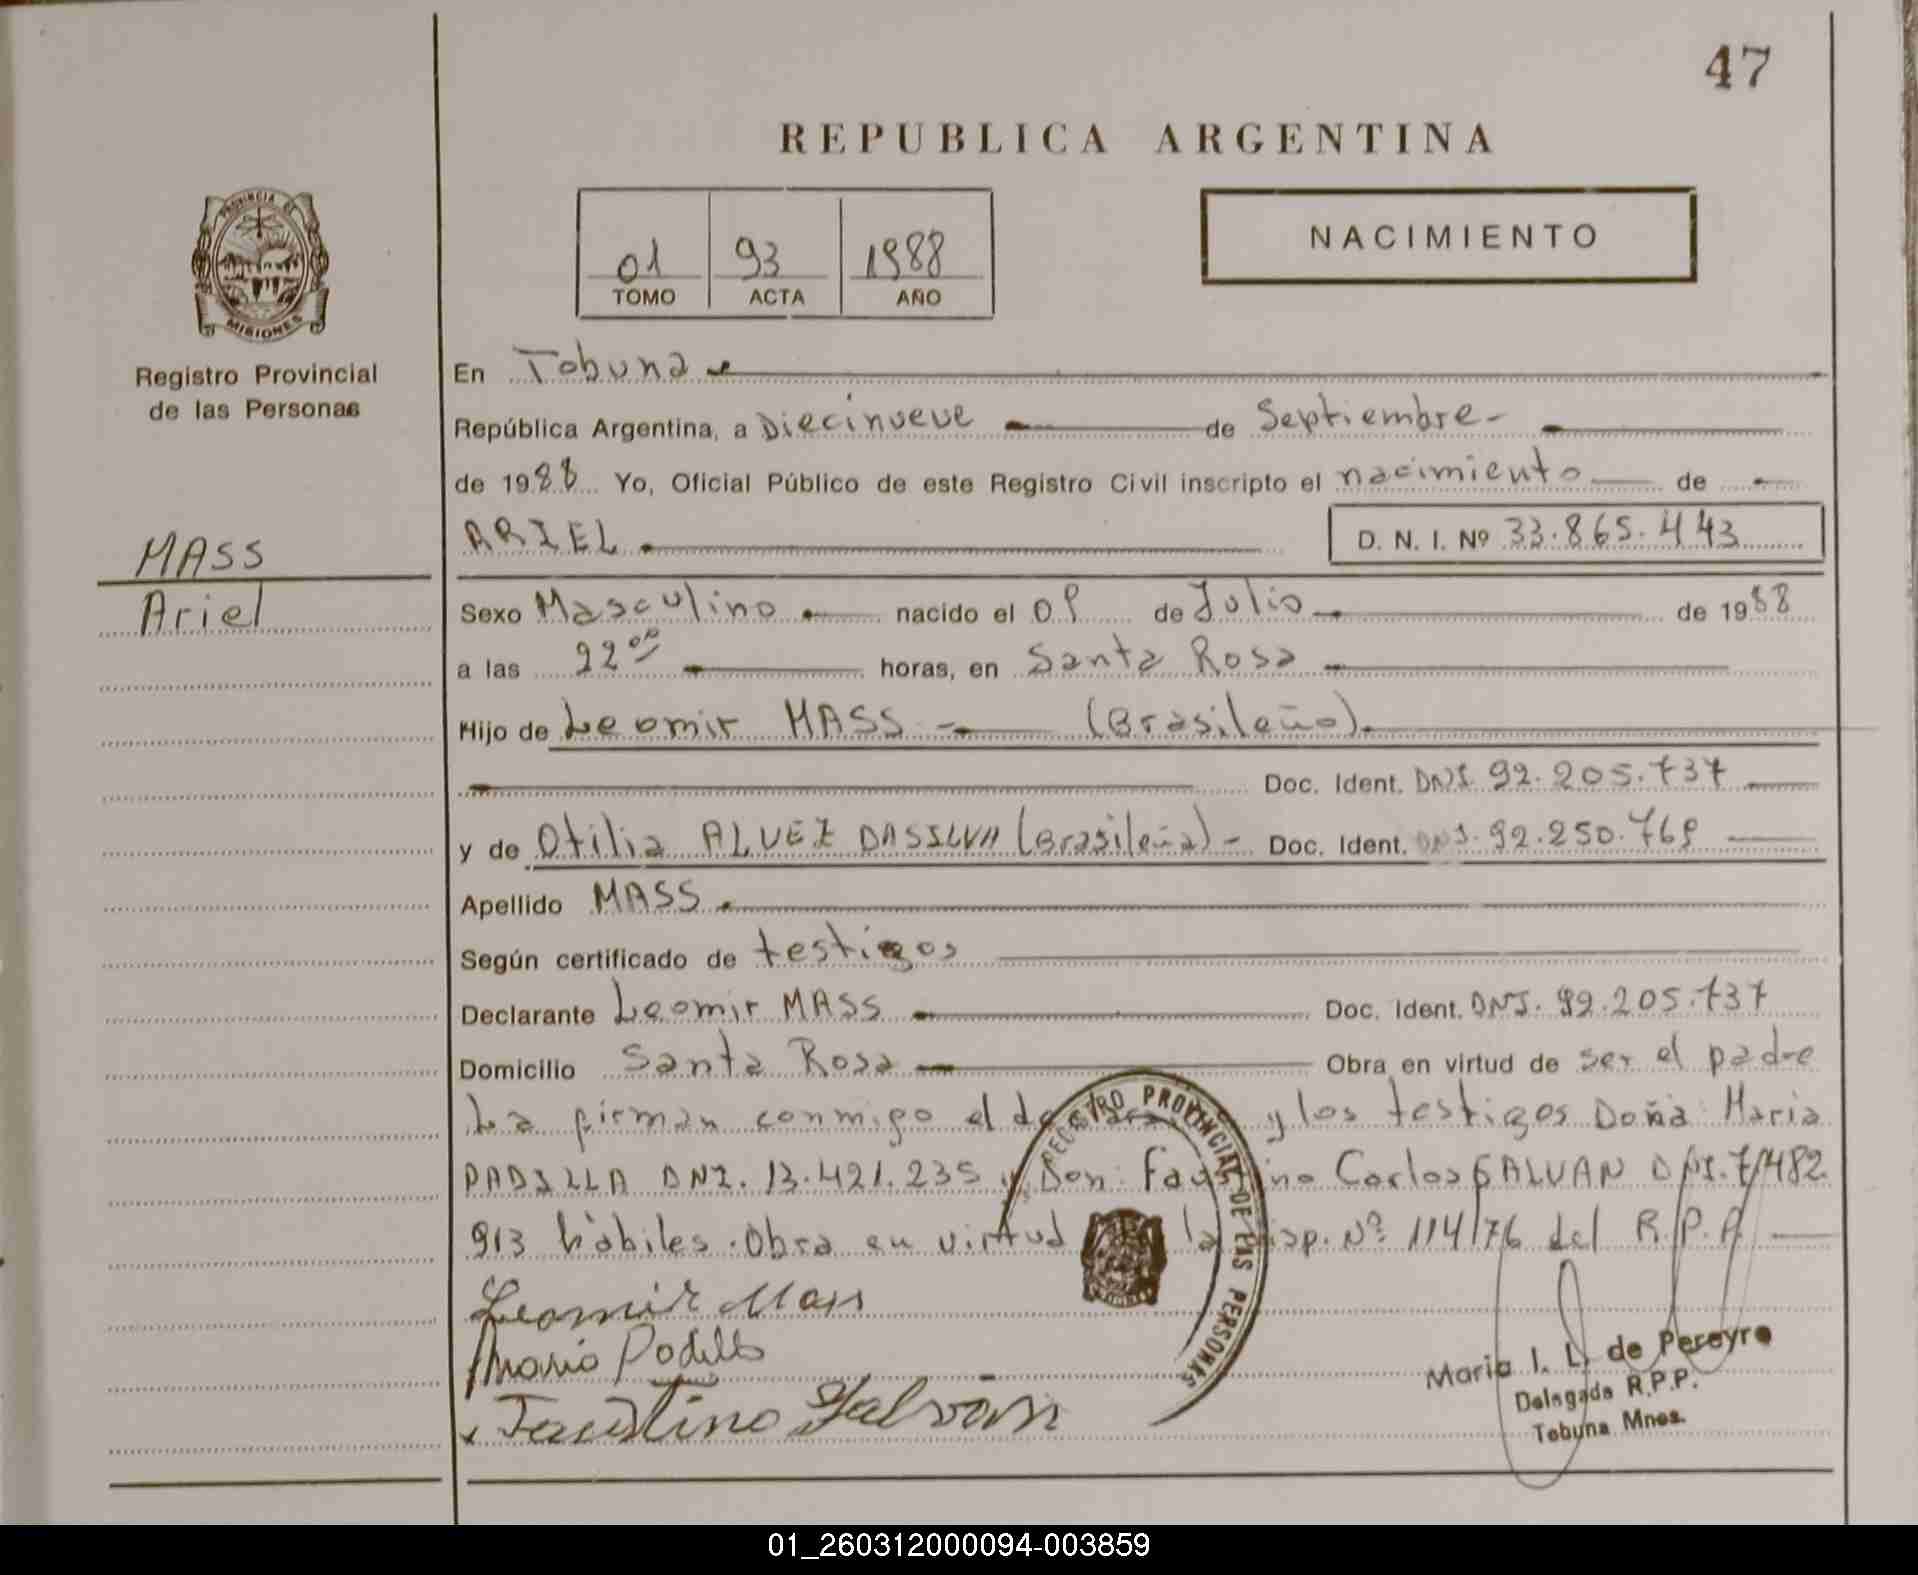 47
REPUBLICA ARGENTINA
PROVINCIA DE
MISIONES
01 93 1988
TOMO ACTA AÑO
NACIMIENTO
Registro Provincial
de las Personas
En Tobuna
República Argentina, a Diecinueve de Septiembre-
de 1988 Yo, Oficial Público de este Registro Civil inscripto el nacimiento de
MASS
ARIEL D. N. I. Nº 33.865.443
Ariel
Sexo Masculino nacido el 09 de Julio de 1988
a las 22⁰⁰ horas, en Santa Rosa
Hijo de Leomir MASS - (Brasileño).
Doc. Ident. DNI. 92.205.737
y de Otilia ALVEZ DASILVA (Brasileña) - Doc. Ident. DNI. 92.250.769
Apellido MASS
Según certificado de testigos
Declarante Leomir MASS Doc. Ident. DNI. 92.205.737
Domicilio Santa Rosa Obra en virtud de ser el padre
La firman conmigo el y los testigos Doña Maria
PADILLA DNI. 13.421.235 y Don Faustino Carlos GALVAN DNI. 7.482.
913 hábiles. Obra en virtud la Disp. Nº 114/76 del R.P.P.
REGISTRO PROVINCIAL DE LAS PERSONAS
Leomir Mass
Maria Padilla
Faustino Galván
Maria I. L. de Pereyra
Delegada R.P.P.
Tobuna Mnes.
01_260312000094-003859